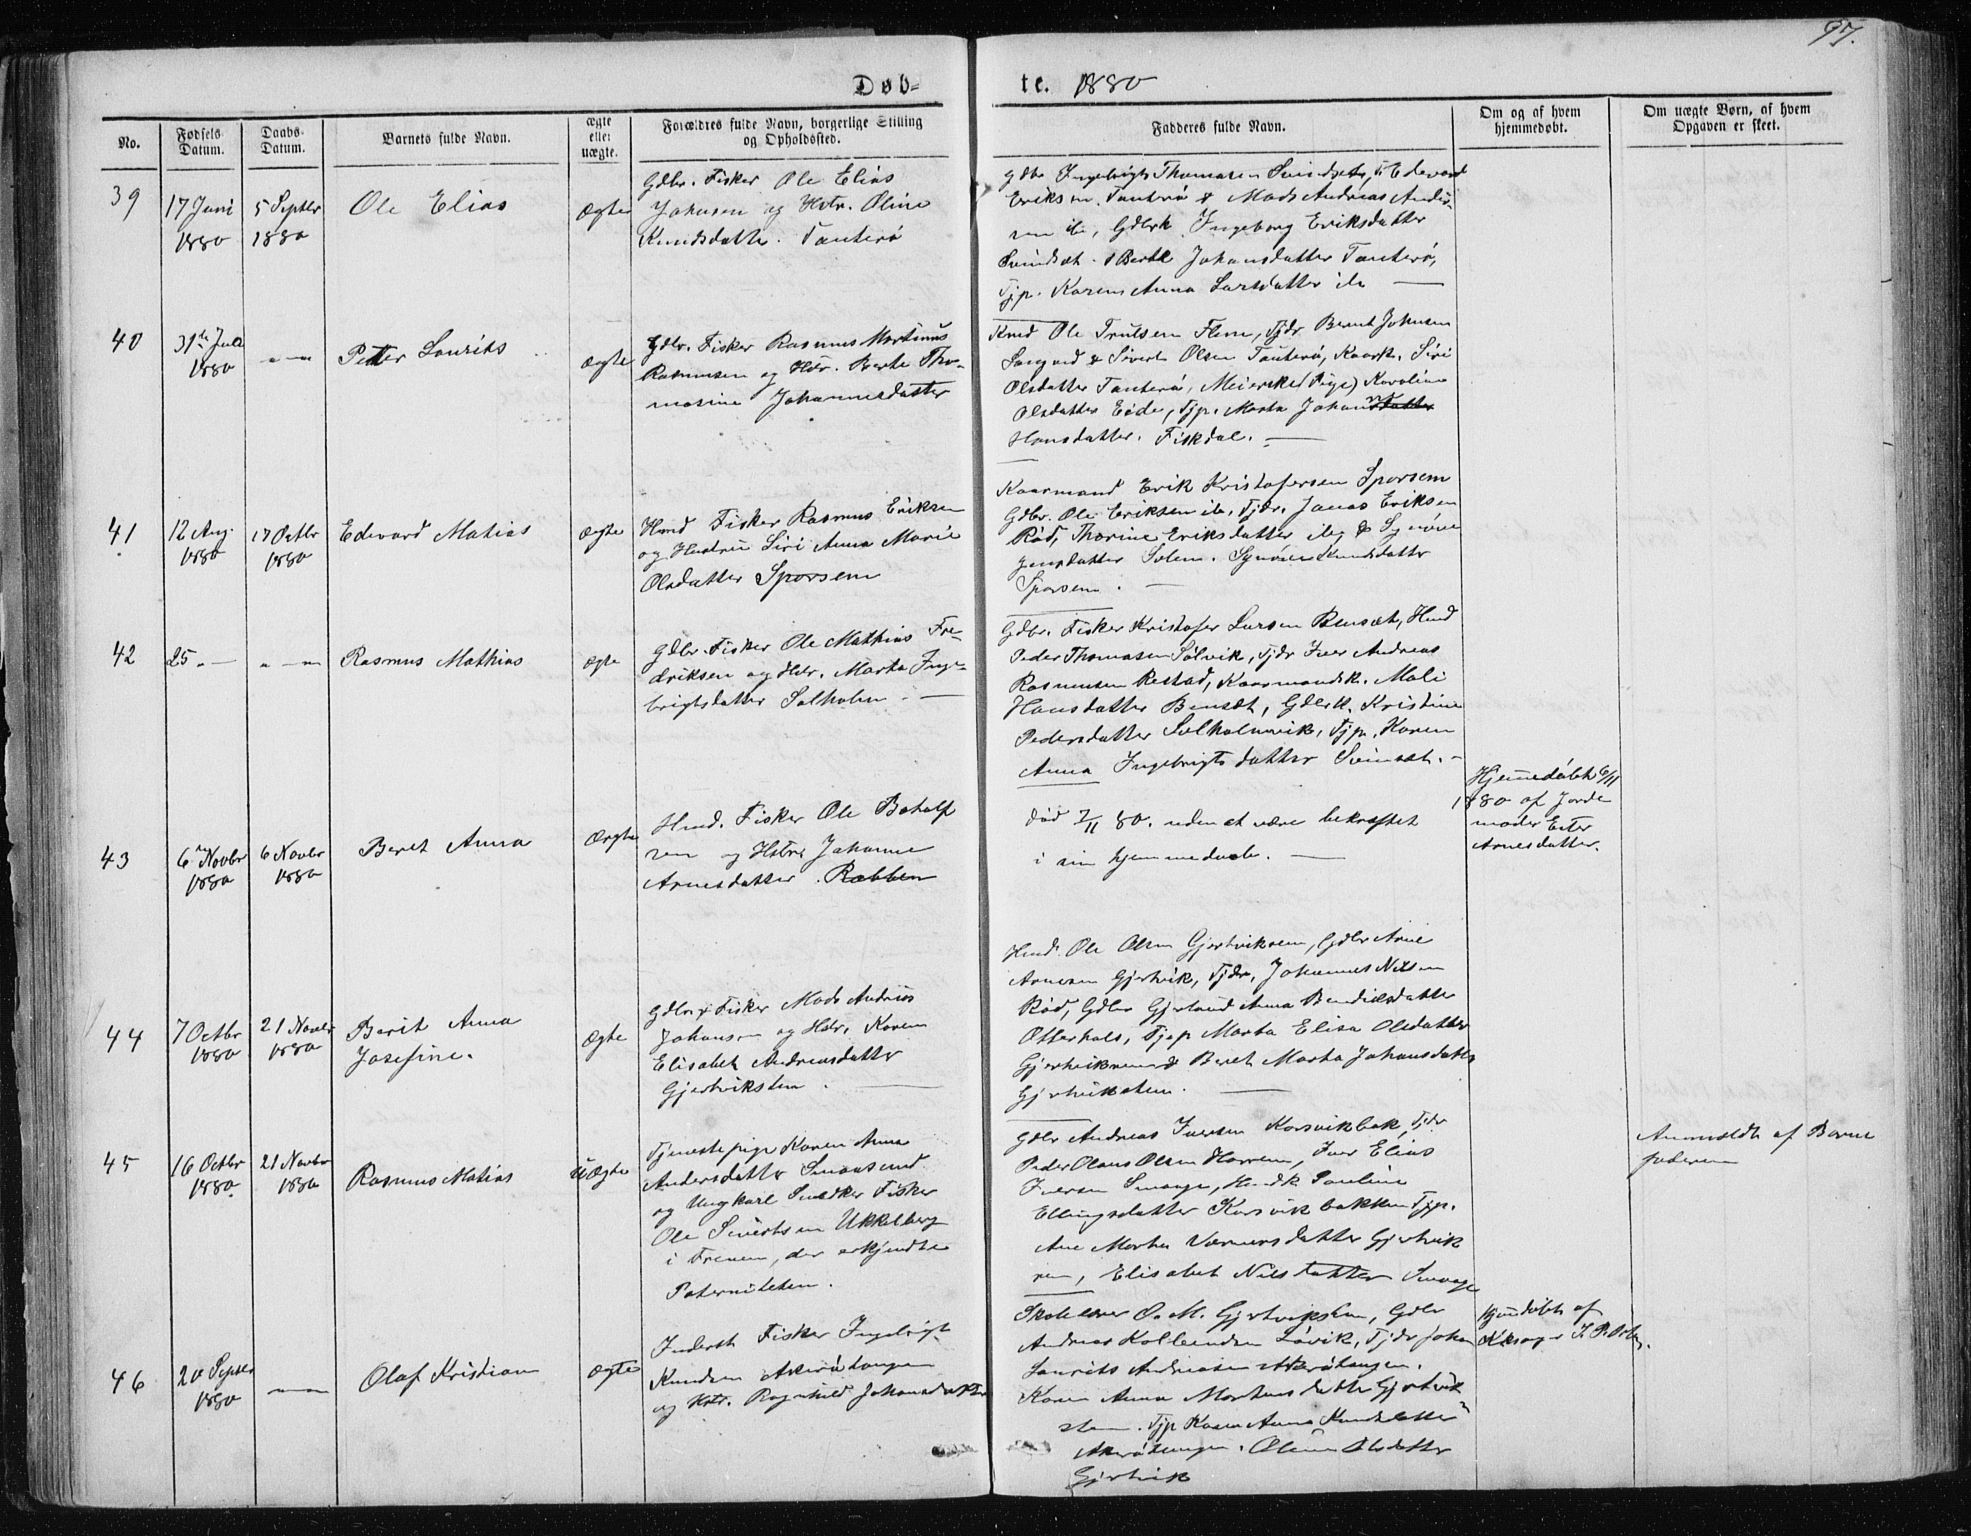 97.
Døb-
te. 1880
No.
Fødsels-
Datum.
Daabs-
Datum.
Barnets fulde Navn.
ægte
eller
uægte.
Forældres fulde Navn, borgerlige Stilling
og Opholdssted.
Fadderes fulde Navn.
Om og af hvem
hjemmedøbt.
Om uægte Børn, af hvem
Opgaven er skeet.
39
17 Juni
1880
5 Septbr
1880
Ole Elias
Ægte
Gdbr. Fisker Ole Elias
Johnsen og Hstr. Oline
Knudsdatter. Tauterø
Gdbr Ingebrigt Thomasen Svindset, Edevard
Eriksen Tauterø & Mads Andreas Ander-
sen ib, Gdbrk Ingeborg Eriksdatter
Svindset. Berte Johansdatter Tauterø,
Tjp. Karen Anna Larsdatter ib
40
31te Juli
1880
Petter Laurits
ægte
Gdbr. Fisker Rasmus Martinus
Rasmussen og Hstr. Berte Tho-
masine Johannesdatter
Ole Trulsen Flem, Tjdr Bernt Johnsen
& Sivert Olsen Tauterø, Kaark. Siri
Olsdatter Tauterø, Meierske (Pige) Karoline
Olsdatter Eide, Tjp. Marta Johansdatter
Hansdatter. Fiskdal.
41
12 Aug
1880
17 Octbr
1880
Edevard Matias
Ægte
Hmd Fisker Rasmus Eriksen
og Hustru Siri Anna Marie
Olsdatter Sporsem
Kaarmand Erik Kristofersen Sporsem
Gdbr. Ole Eriksen ib, Tjdr. Jonas Eriksen
Rød, Thorine Eriksdatter ib, & Synøve
Jensdatter Solem. Synøve Knudsdatter
Sporsem.
42
25
Rasmus Mathias
Ægte
Gdbr. Fisker Ole Mathias Fre-
driksen og Hstr. Marta Inge-
brigtsdatter Solholm.
Gdbr. Fisker Kristofer Larsen Bensæt, Hmd
Peder Thomasen Sølvik, Tjdr Iver Andreas
Rasmussen Restad, Kaarmandsk. Mali
Hansdatter Bensæt, Gdbrk. Kristine
Pedersdatter Solholmvik, Tjp. Karen
Anna Ingebrigtsdatter Svinsæt.
43
6 Novbr
1880
6 Novbr
1880
Beret Anna
Ægte
Hmd. Fisker Ole Botolf
sen og Hstr Johanne
Arnesdatter. Rabben
død 7/11 80. uden at være bekræftet
i sin hjemmedaab.
Hjemmedøbt 6/11
1880 af Jorde
moder Ester
Arnesdatter.
44
7 Octbr
1880
21 Novbr
1880
Berit Anna
Josefine.
Ægte
Gdbr & Fisker Mads Andreas
Johansen og Hstr. Karen
Elisabet Andreasdatter
Gjertvikstem.
Hmd Ole Olsen Gjertvikrem, Gdbr Arne
Arnesen Gjertvik, Tjdr. Johannes Nilsen
Rød, Gdbr Gjertrud Anna Bendiksdatter
Otterhals, Tjp Marta Elisa Olsdatter
Gjertvikrem & Beret Marta Johansdatter
Gjertvikstem.
45
16 Octbr
1880
21 Novbr
1880
Rasmus Matias
uÆgte
Tjenestepige Karen Anna
Andersdatter Smaasund
og Ungkarl Snedker Fisker
Ole Sivertsen Ukkelberg
i Frenen, der erkjendte
Paterniteten.
Gdbr Andreas Iversen Korsvikbak, Tjdr
Peder Olaus Olsen Harrem, Iver Elias
Iversen Smaage, Hmdk Pauline
Ellingsdatter Korsvikbakken Tjp.
Ane Marta Værnersdatter Gjertvik
rem, Elisabet Nilsdatter Smaage
Anmeldt af Barne
faderen
46
20 Septbr
1880
Olaf Kristian
ægte
Inderst Fisker Ingebrigt
Knudsen Akerøtangen
og Hstr. Ragnhild Johansdatter
Skolelærer O. M. Gjertvikstem, Gdbr
Andreas Kolbeinsen Løvik, Tjdr Johan
Laurits Andreasen Akerøtangen.
Karen Anna Mortensdatter Gjertvik
stem. Tjp Karen Anna Knudsdatter
Akerøtangen. Oline Olsdatter
Gjertvik
Hjemdøbt af
Kksanger